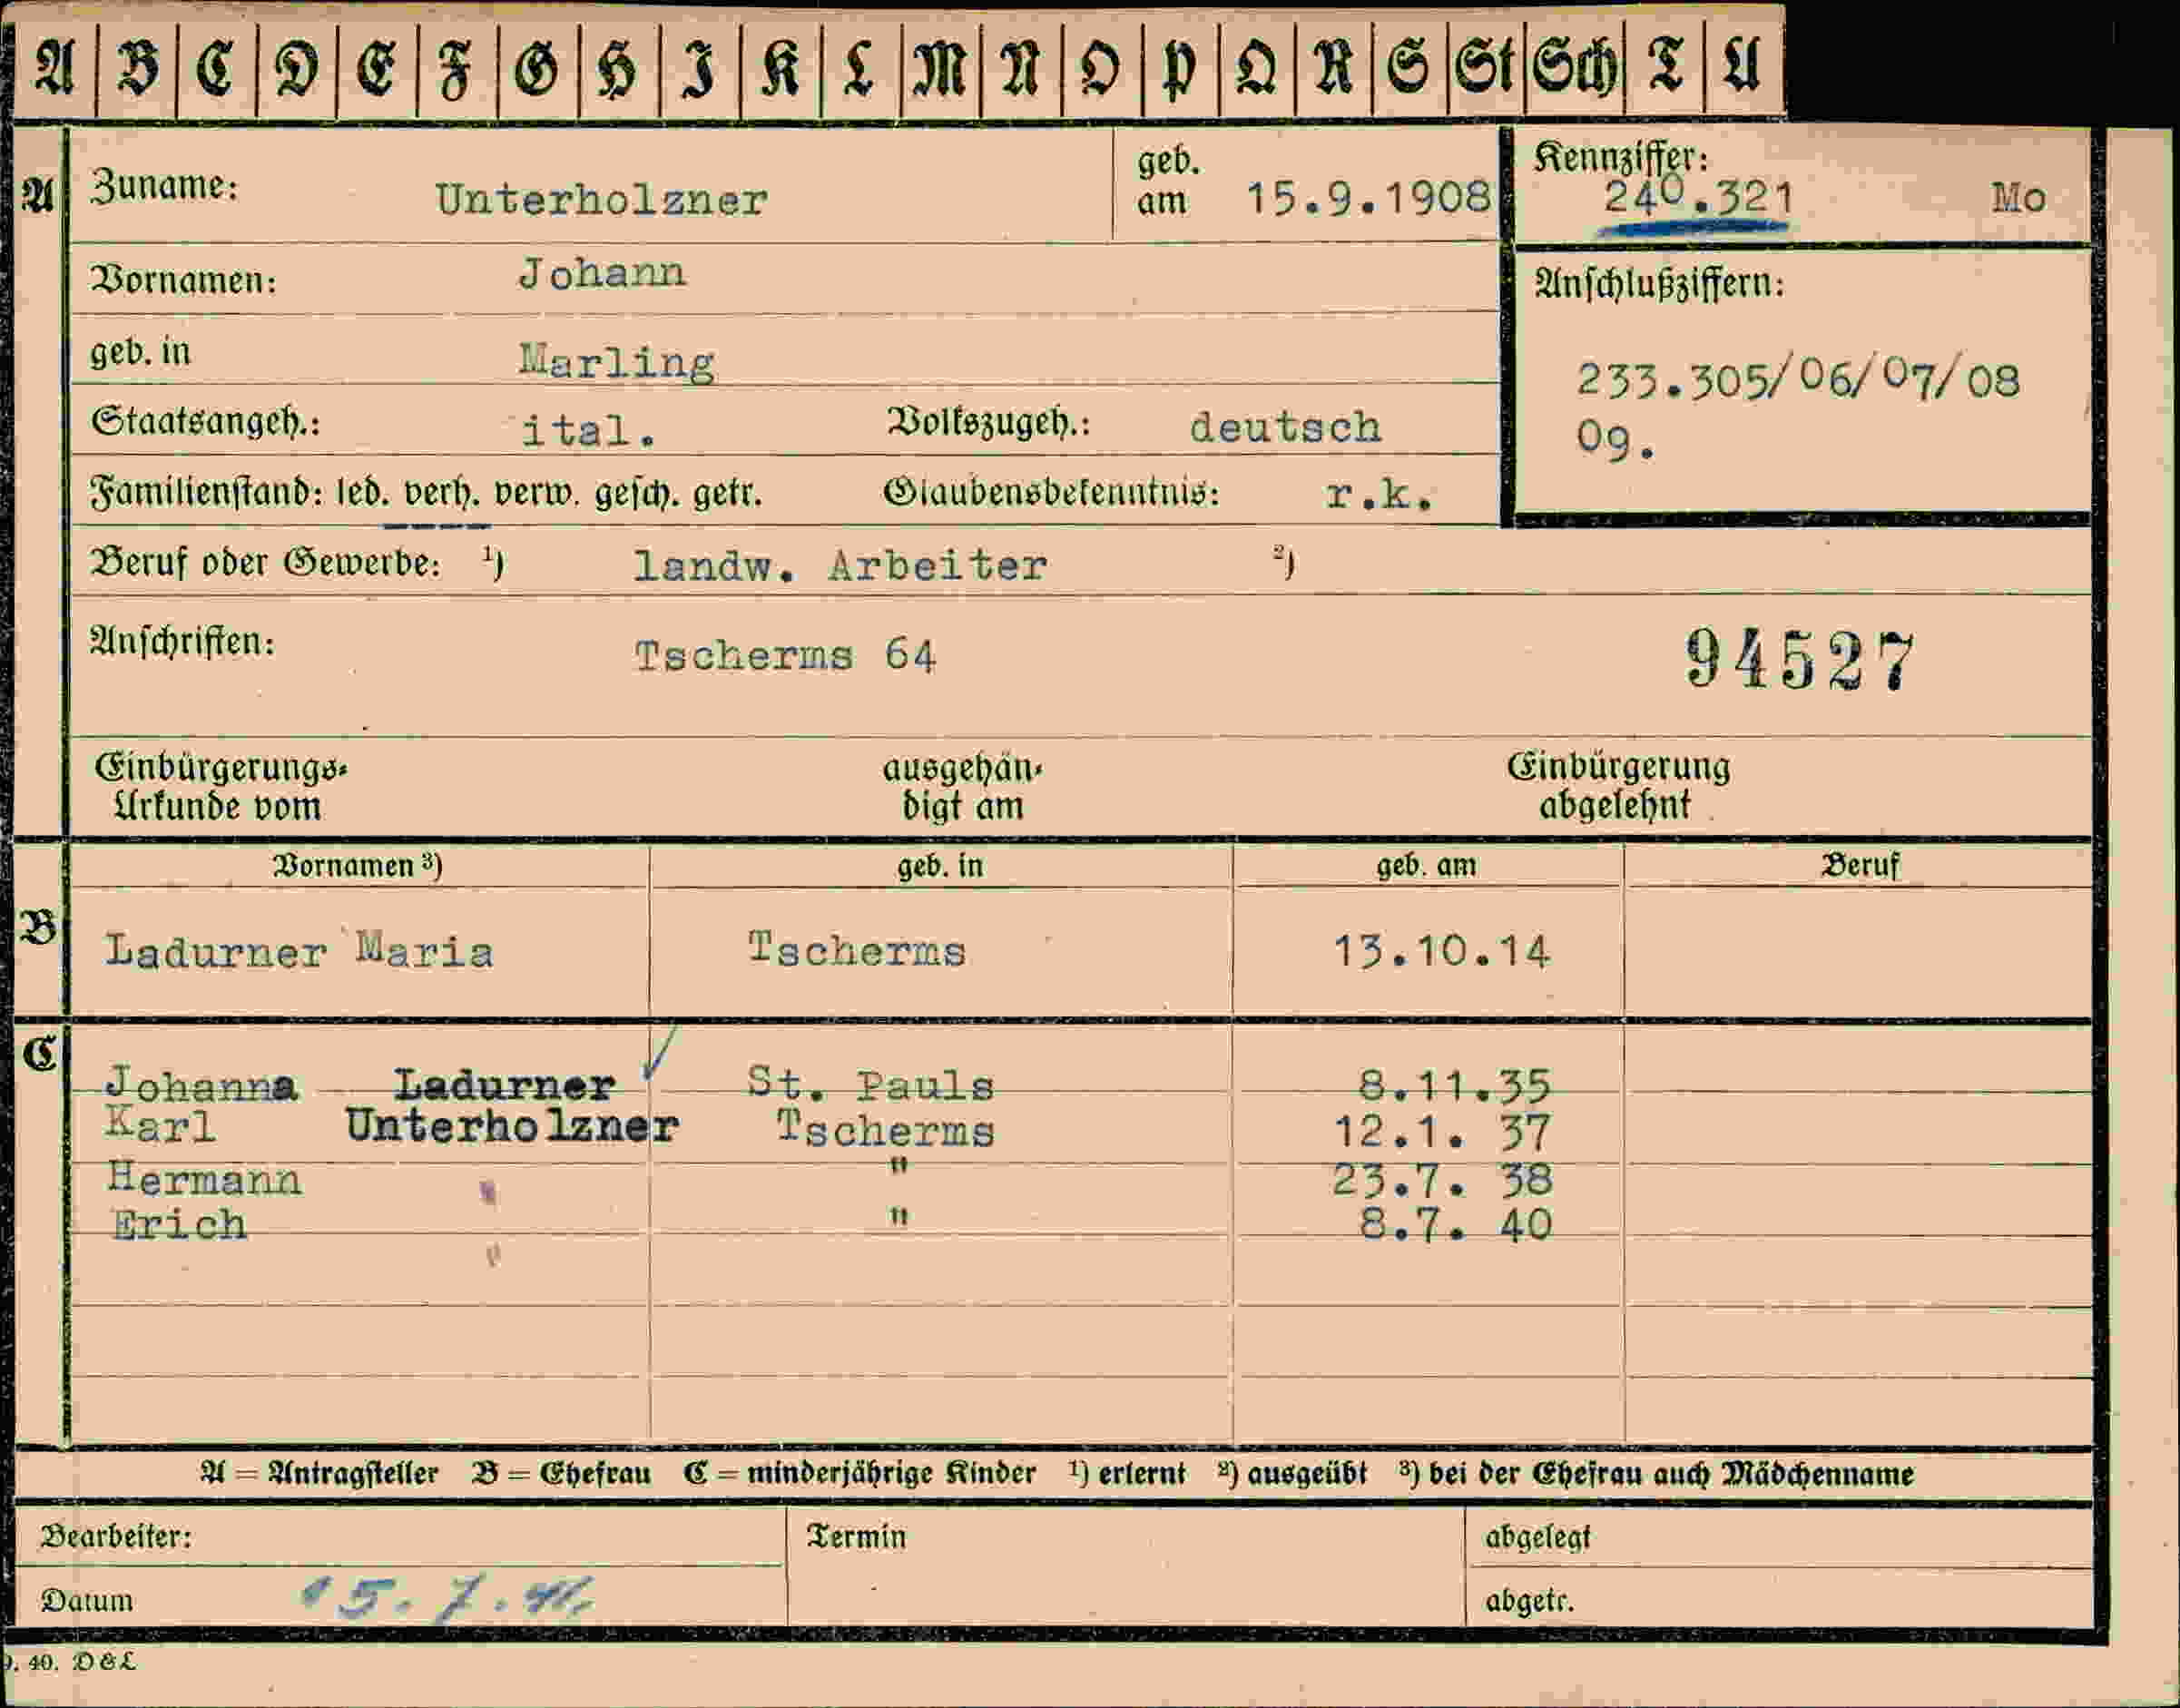 A B C D E F G H I K L M N O P Q R S St Sch T U
A Zuname: Unterholzner geb. am 15.9.1908 Kennziffer: 240.321 Mo
Vornamen: Johann Anschlußziffern:
geb. in Marling 233.305/06/07/08
Staatsangeh.: ital. Volkszugeh.: deutsch 09.
Familienstand: led. verh. verw. gesch. getr. Glaubensbekenntnis: r.k.
Beruf oder Gewerbe: ¹) landw. Arbeiter ²)
Anschriften: Tscherms 64 94527
Einbürgerungs- ausgehän- Einbürgerung
Urkunde vom digt am abgelehnt
Vornamen ³) geb. in geb. am Beruf
B Ladurner Maria Tscherms 13.10.14
C
Johanna Ladurner St. Pauls 8.11.35
Karl Unterholzner Tscherms 12.1. 37
Hermann " " 23.7. 38
Erich " " 8.7. 40
A = Antragsteller B = Ehefrau C = minderjährige Kinder ¹) erlernt ²) ausgeübt ³) bei der Ehefrau auch Mädchenname
Bearbeiter: Termin abgelegt
Datum 15.7.41. abgetr.
9. 40. D & L